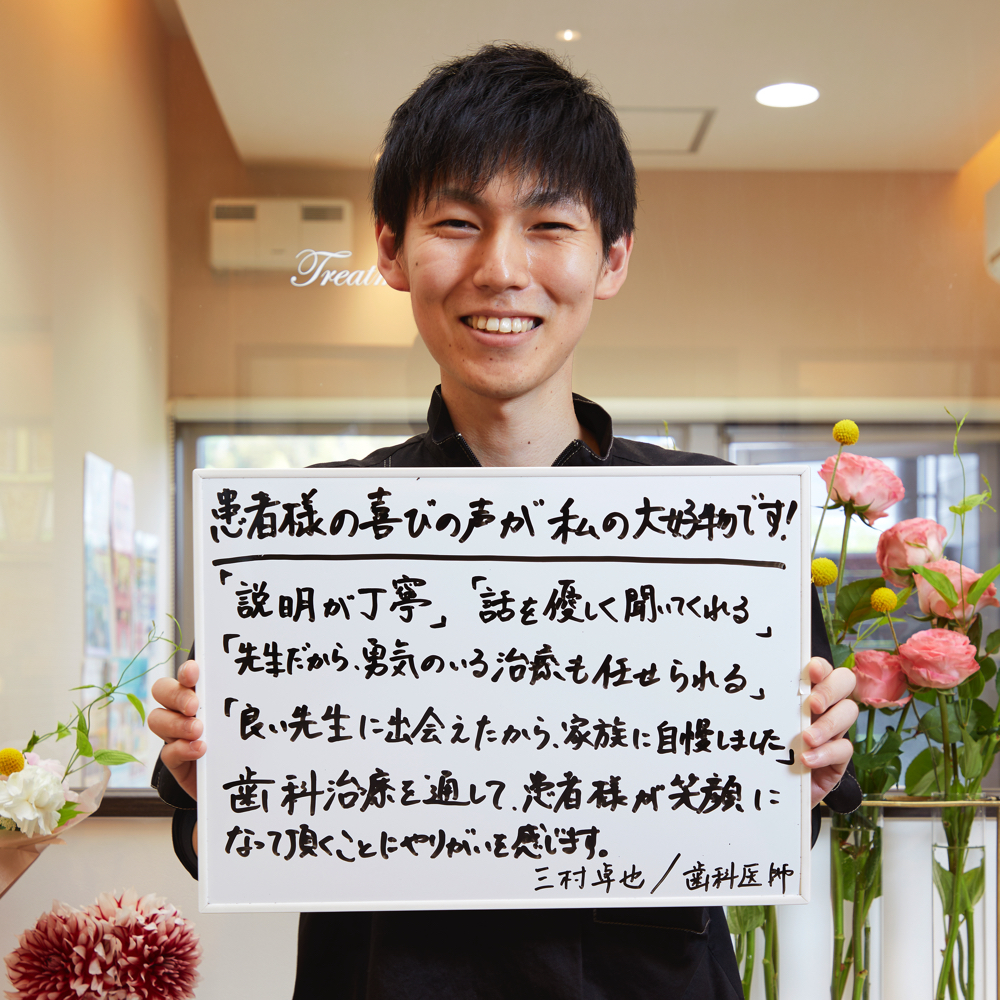 Treatm
患者様の喜びの声が私の大好物です!
「説明が丁寧」「話を優しく聞いてくれる」
「先生だから、勇気のいる治療も任せられる」
「良い先生に出会えたから、家族に自慢しました」
歯科治療を通して、患者様が笑顔に
なって頂くことにやりがいを感じます。
三村卓也/歯科医師